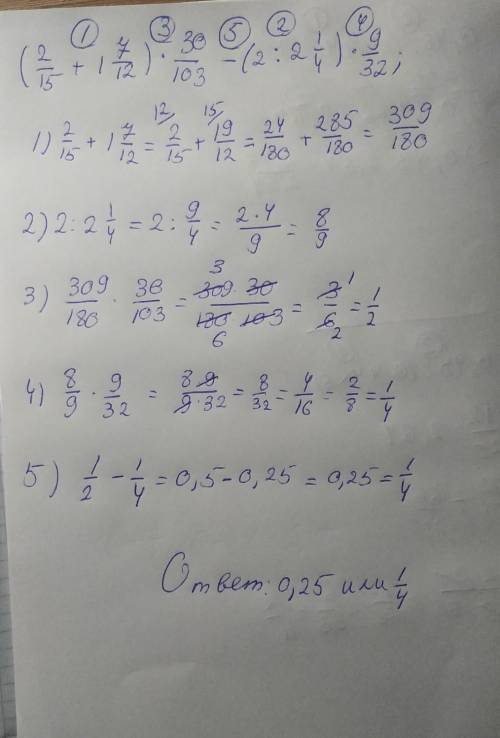 ① ③ ⑤ ② ④
(2/15 + 1 7/12) · 30/103 − (2 : 2 1/4) · 9/32;
1) 2/15 + 1 7/12 = 12/ 2/15 + 15/ 19/12 = 24/180 + 285/180 = 309/180
2) 2 : 2 1/4 = 2 : 9/4 = 2·4/9 = 8/9
3) 309/180 · 30/103 = 3 309·30/180·103 6 = 3/6 1 2 = 1/2
4) 8/9 · 9/32 = 8·9/9·32 = 8/32 = 4/16 = 2/8 = 1/4
5) 1/2 − 1/4 = 0,5 − 0,25 = 0,25 = 1/4
Ответ: 0,25 или 1/4